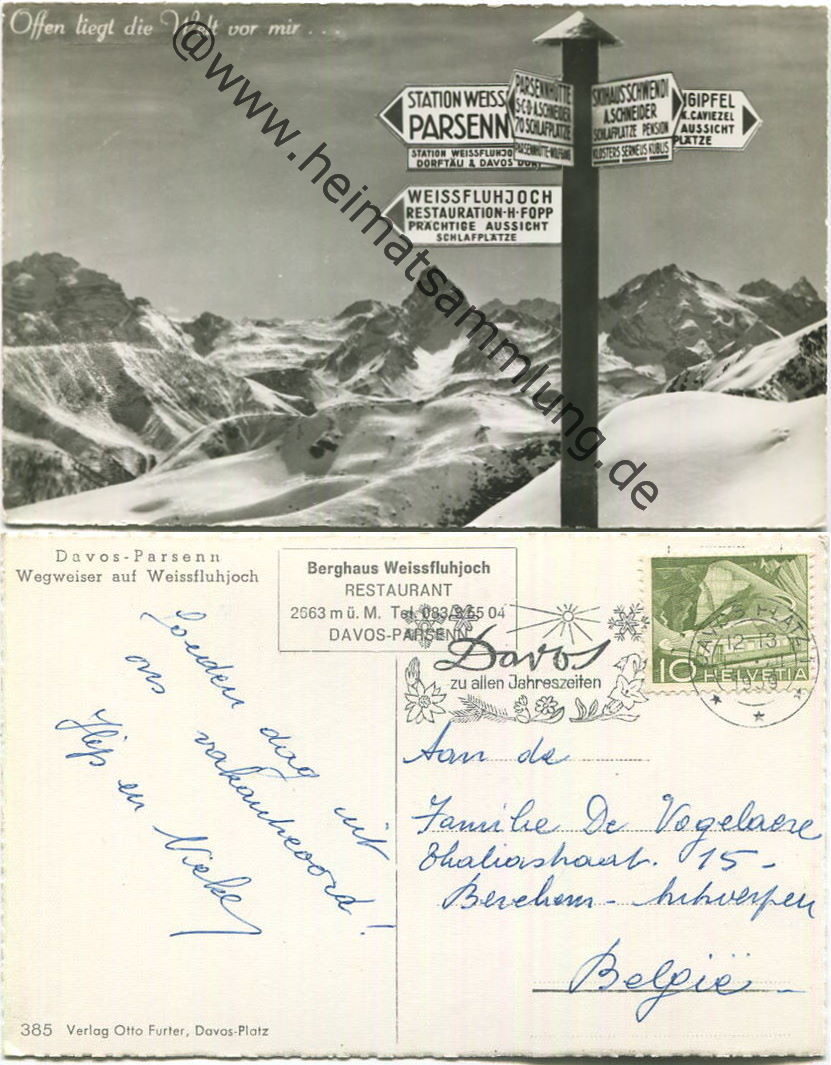 Offen liegt die Welt vor mir . . .
@www.heimatsammlung.de
STATION WEISS
PARSENN
STATION WEISSFLUHJO
DORFTÄLI & DAVOS DORF
PARSENNHÜTTE
S·C·D·A.SCHNEIDER
70 SCHLAFPLÄTZE
PARSENNHÜTTE-WOLFGANG
SKIHAUS SCHWENDI
A.SCHNEIDER
SCHLAFPLÄTZE PENSION
KLOSTERS SERNEUS KÜBLIS
IGIPFEL
K.CAVIEZEL
AUSSICHT
PLÄTZE
WEISSFLUHJOCH
RESTAURATION-H·FOPP
PRÄCHTIGE AUSSICHT
SCHLAFPLÄTZE
Davos-Parsenn
Wegweiser auf Weissfluhjoch
Berghaus Weissfluhjoch
RESTAURANT
2663 m ü. M. Tel. 083/3 55 04
DAVOS-PARSENN
Davos
zu allen Jahreszeiten
10 HELVETIA
DAVOS PLATZ
12-13
1959
Goeden dag uit
ons vakantieoord!
Flip en Nieke
Aan de
Familie De Vogelaere
Thaliastraat. 15-
Berchem-Antwerpen
België-
385 Verlag Otto Furter, Davos-Platz